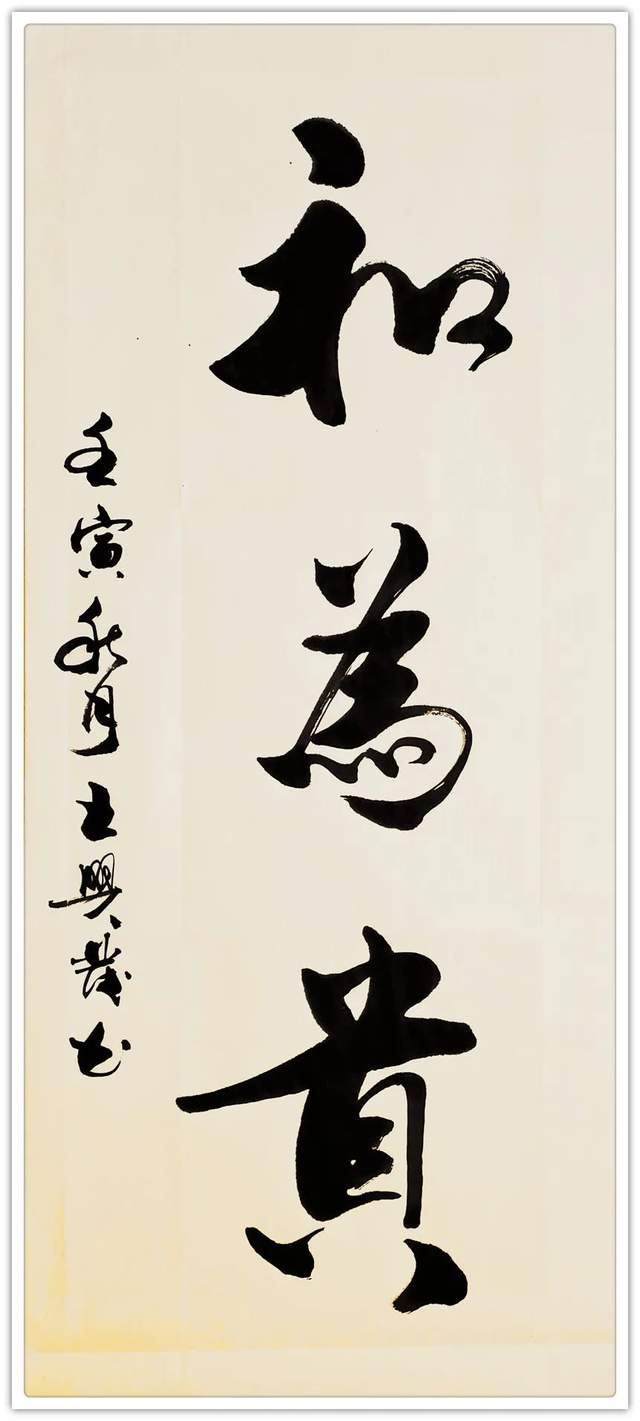 和為貴
壬寅秋月王興發书